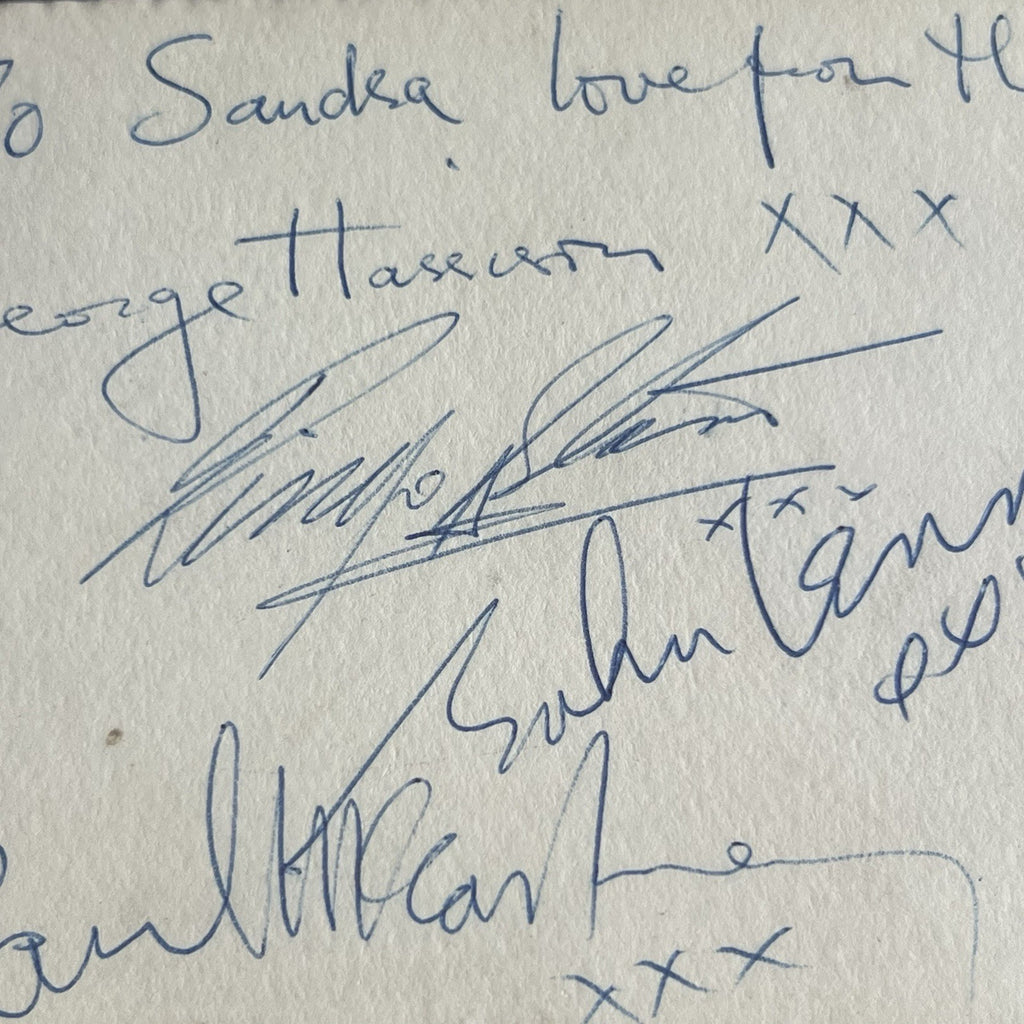 To Sandra love from th
eorge Harrison xxx
Ringo Starr
xx
John Lenn
Paul McCartney
xxx